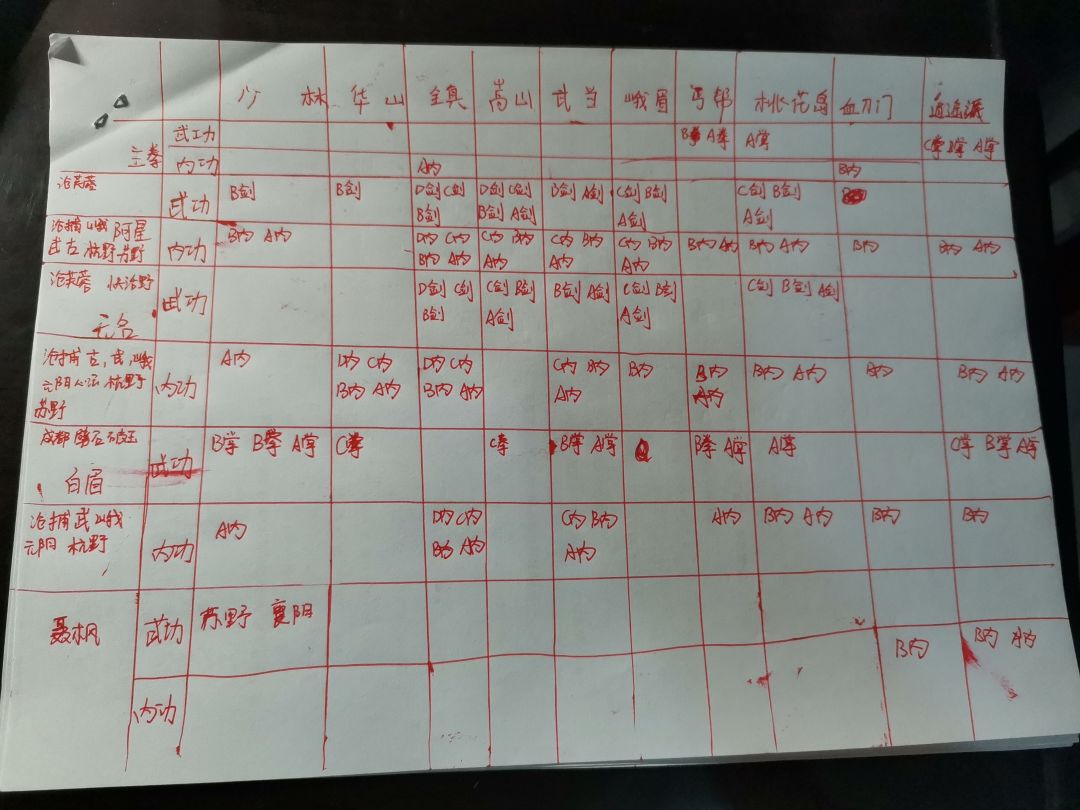 少林 华山 全真 嵩山 武当 峨眉 丐帮 桃花岛 血刀门 逍遥派
主拳 武功 B拳 A拳 A拳 C拳 B拳 A拳
内功 A内 B内
沧芙蓉 武功 B剑 B剑 D剑 C剑 D剑 C剑 B剑 A剑 C剑 B剑 C剑 B剑
B剑 B剑 A剑 A剑 A剑
沧捕 峨 阿星
武 左 杭野 苏野 内功 B内 A内 D内 C内 C内 B内 C内 B内 C内 B内 B内 A内 B内 A内 B内 B内 A内
B内 A内 A内 A内 A内
沧芙蓉 快活野 武功 D剑 C剑 C剑 B剑 B剑 A剑 C剑 B剑 C剑 B剑 A剑
无名 B剑 A剑 A剑
沧捕 左, 武, 峨 A内 D内 C内 D内 C内 C内 B内 B内 B内 B内 A内 B内 B内 A内
元阳心法 杭野 内功 B内 A内 B内 A内 A内 A内
苏野
成都 磐石 不成玉 武功 B拳 B拳 A拳 C拳 C拳 B拳 A拳 B拳 A拳 A拳 C拳 B拳 A拳
白眉
沧捕 武 峨 内功 A内 D内 C内 C内 B内 A内 B内 A内 B内 B内
元阳 杭野 B内 A内 A内
聂枫 武功 苏野 襄阳
B内 B内 A内
内功